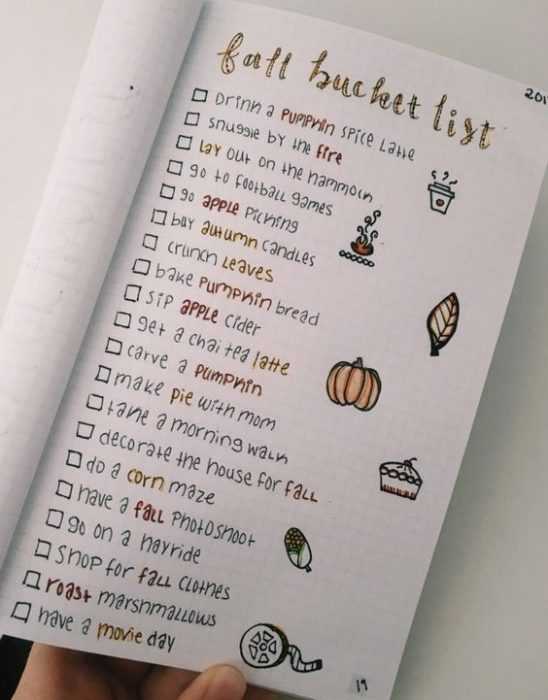 fall bucket list
201
Drink a pumpkin spice latte
snuggle by the fire
lay out on the hammock
go to football games
go apple picking
buy autumn candles
crunch leaves
bake pumpkin bread
sip apple cider
get a chai tea latte
carve a pumpkin
make pie with mom
take a morning walk
decorate the house for fall
do a corn maze
have a fall photoshoot
go on a hayride
shop for fall clothes
roast marshmallows
have a movie day
19